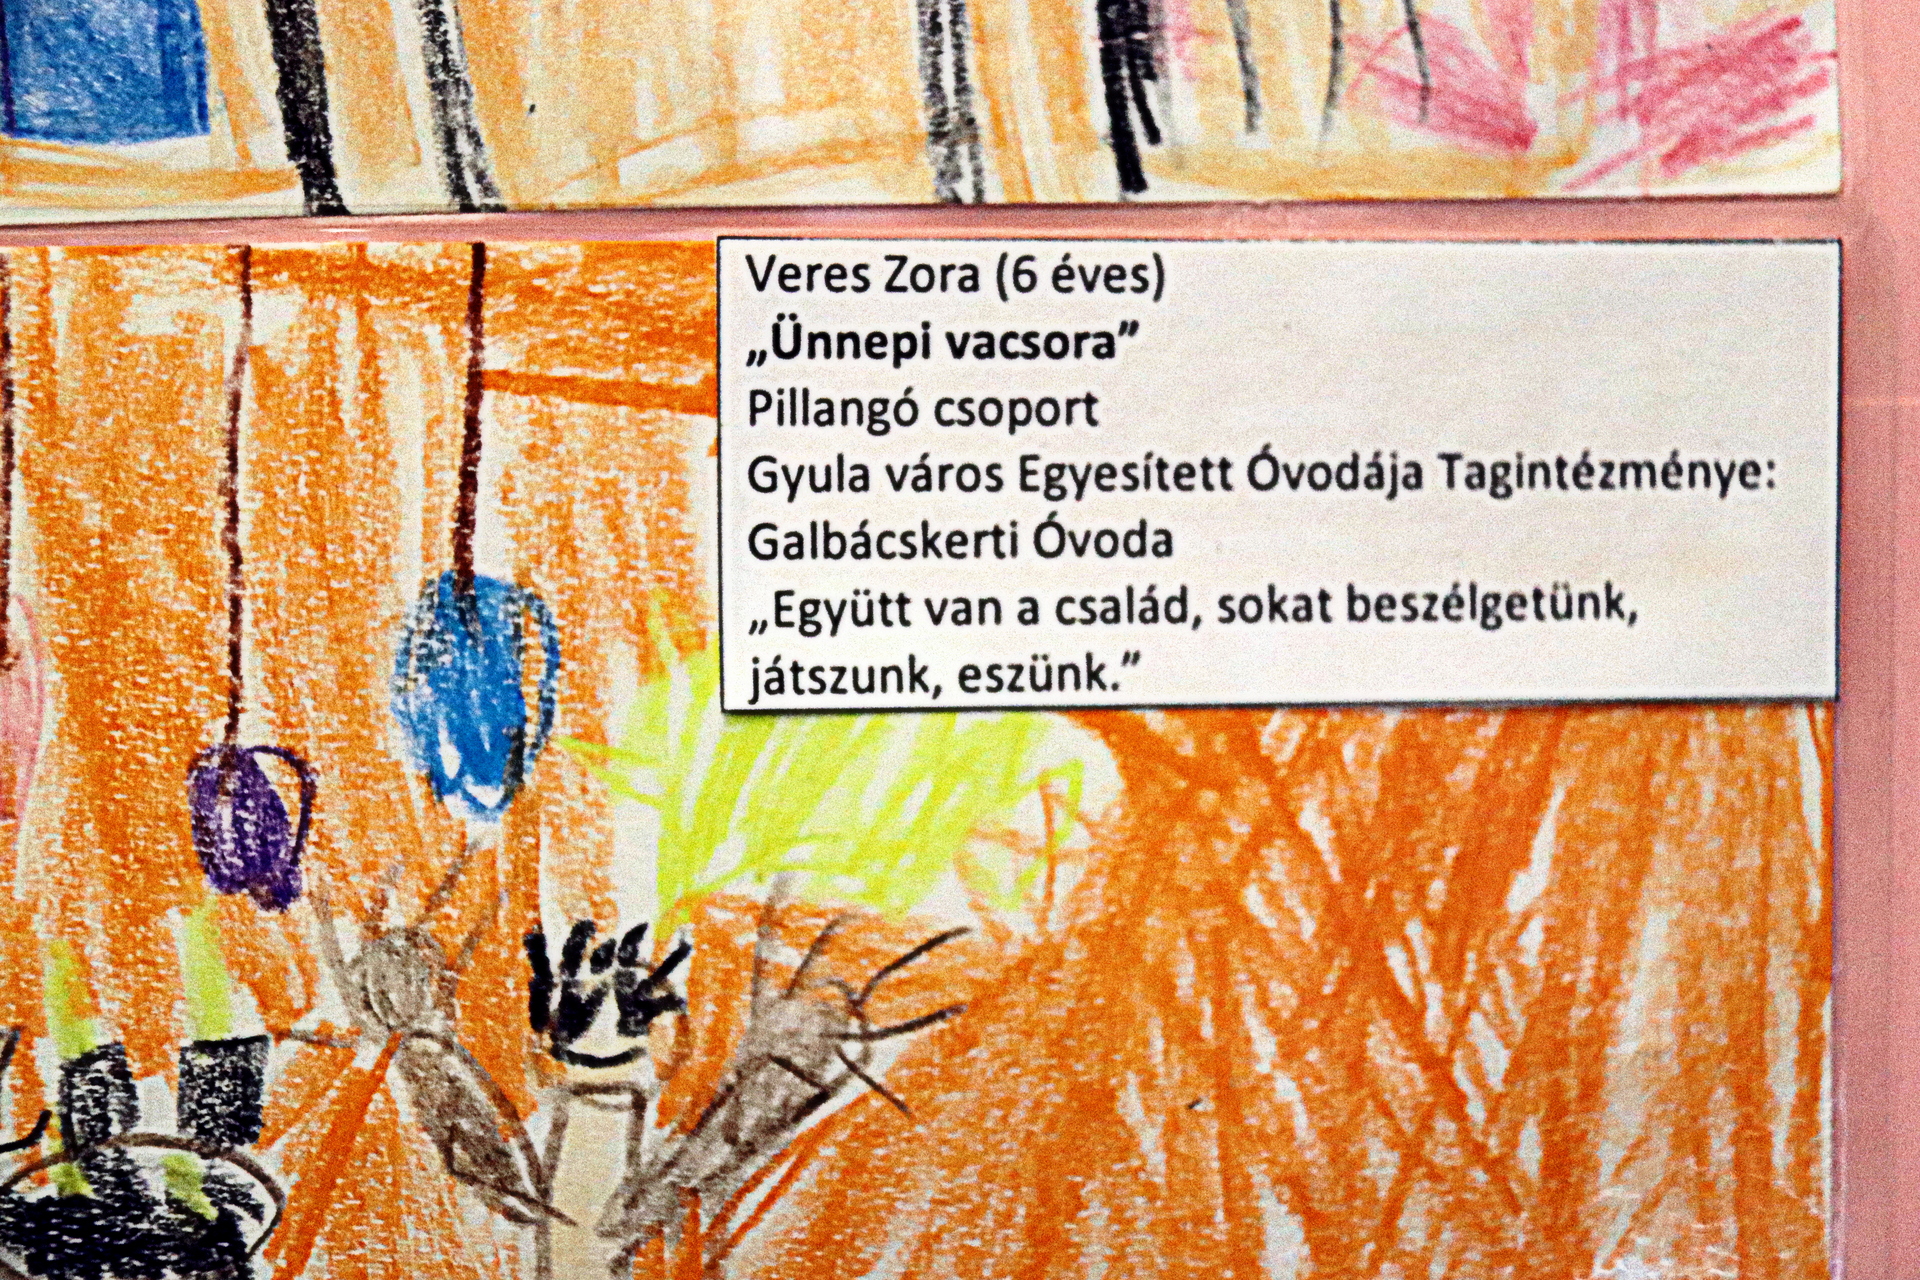 Veres Zora (6 éves)
„Ünnepi vacsora”
Pillangó csoport
Gyula város Egyesített Óvodája Tagintézménye:
Galbácskerti Óvoda
„Együtt van a család, sokat beszélgetünk,
játszunk, eszünk.”